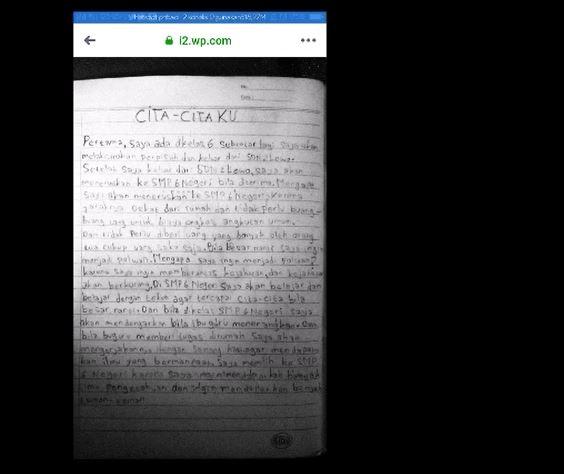 i2.wp.com
No:
Date:
CITA-CITA KU
Pertama, Saya ada dkelas 6 Sebentar lagi saya akan
melaksanakan perpisah dan keluar dari SDN 2 Lowa.
Setelah Saya keluar dari SDN 2 Lowa, saya akan
meneruskan ke SMP 6 Negeri bila diterima. Mengapa
Saya akan meneruskan ke SMP 6 Negeri, Karena
jaraknya Dekat dari rumah dan tidak Perlu buang-
buang uang untuk biaya ongkos angkutan umum.
Dan tidak Perlu diberi uang yang banyak oleh orang
tua cukup uang saku saja. Bila besar nanti saya ingin
menjadi polwan. Mengapa saya ingin menjadi Polwan?
karena saya ingin memberantas kejahatan, dan kejahatan
akan berkurang. Di SMP 6 Negeri Saya akan belajar dan
belajar dengan tekun agar tercapai cita-cita bila
besar nanti. Dan bila dikelas SMP 6 Negeri saya
akan mendengarkan bila ibu guru menerangkan. Dan
bila buguru memberi tugas dirumah saya akan
mengerjakannya dengan Senang hati, agar mendapat
kan ilmu yang bermanfaat. Saya memilih ke SMP
6 Negeri karena saya banyak
ilmu pengetahuan dan ingin mendapatkan banyak
teman-teman